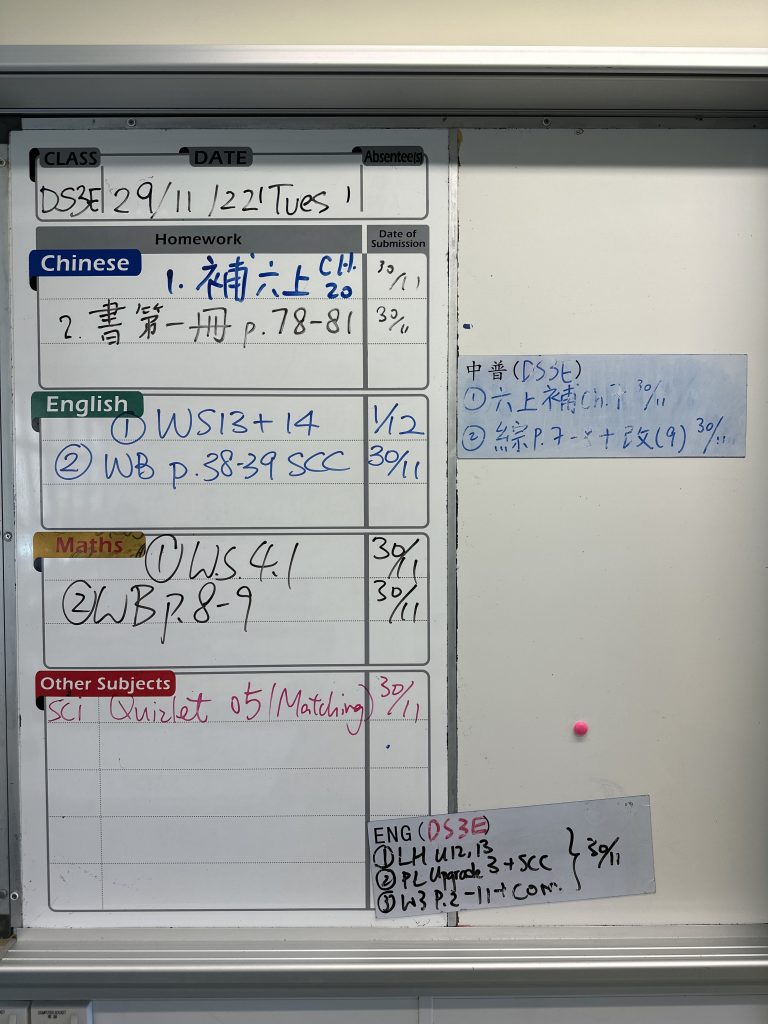 CLASS DATE Absentee(s)
DS3E 29/11/22 (Tues)
Homework Date of Submission
Chinese
1. 補六上 CH. 20 30/11
2. 書第一冊 p.78-81 30/11
English
① WS13+14 1/12
② WB p.38-39 SCC 30/11
Maths
① W.S.4.1 30/11
② WB p.8-9 30/11
Other Subjects
Sci Quizlet 05 (Matching) 30/11
中普(DS3E)
① 六上補 30/11
② 綜P.7 + 改(9) 30/11
ENG (DS3E)
① LH U12,13
② PL Upgrade 3 + SCC 30/11
③ W3 P.2-11 +